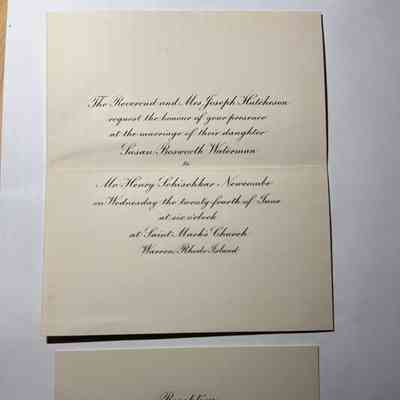 The Reverend and Mrs Joseph Hutcheson
request the honour of your presence
at the marriage of their daughter
Susan Bosworth Waterman
to
Mr Henry Newcombe
on Wednesday the twenty-fourth of June
at six o'clock
at Saint Mark's Church
Warren, Rhode Island
Reception